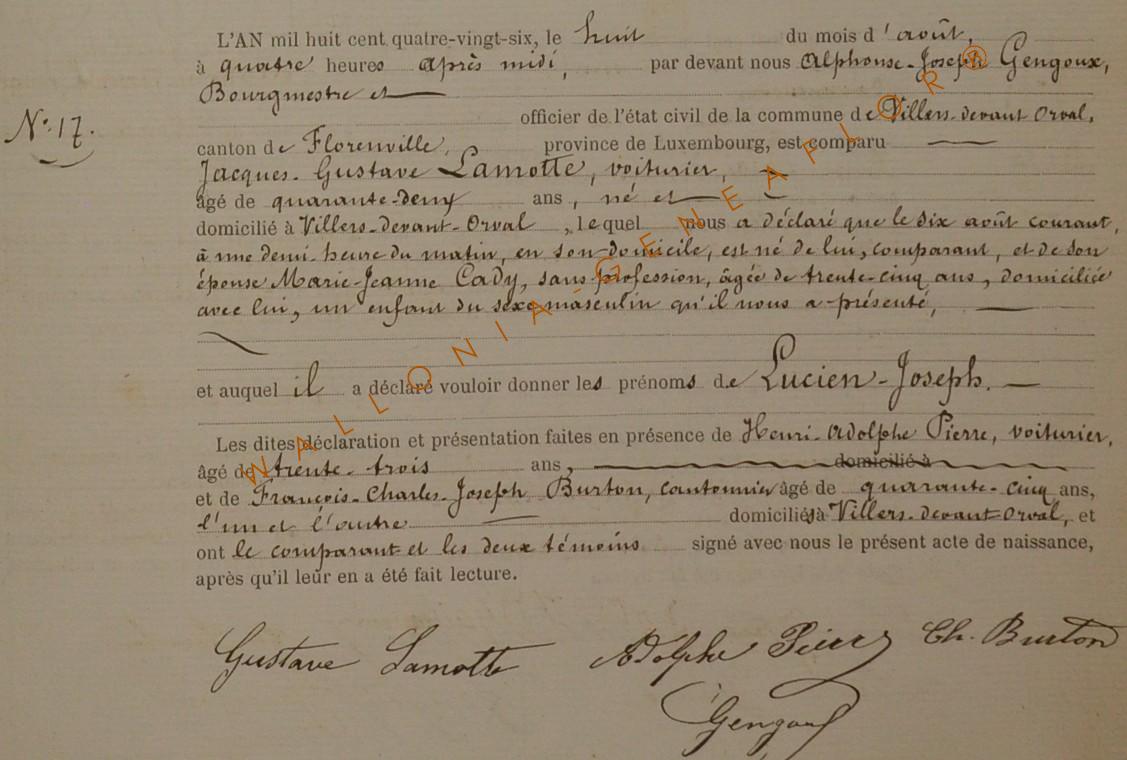 L'AN mil huit cent quatre-vingt-six, le huit du mois d'août,
à quatre heures après midi, par devant nous Alphonse-Joseph Gengoux,
Bourgmestre et
officier de l'état civil de la commune de Villers-devant Orval,
N°. 17.
canton de Florenville, province de Luxembourg, est comparu
Jacques-Gustave Lamotte, voiturier,
âgé de quarante-deux ans, né et
domicilié à Villers-devant-Orval, lequel nous a déclaré que le six août courant,
à une demi-heure du matin, en son domicile, est né de lui, comparant, et de son
épouse Marie-Jeanne Cady, sans profession, âgée de trente-cinq ans, domiciliée
avec lui, un enfant du sexe masculin qu'il nous a présenté,
et auquel il a déclaré vouloir donner les prénoms de Lucien-Joseph.
Les dites déclaration et présentation faites en présence de Henri-Adolphe Pierre, voiturier,
âgé de trente-trois ans, domicilié à
et de François-Charles-Joseph Burton, cantonnier âgé de quarante-cinq ans,
l'un et l'autre domiciliés à Villers-devant-Orval, et
ont le comparant et les deux témoins signé avec nous le présent acte de naissance,
après qu'il leur en a été fait lecture.
Gustave Lamotte Adolphe Pierre Ch. Burton
Gengoux
WALLONIA-GENEAFLOR®